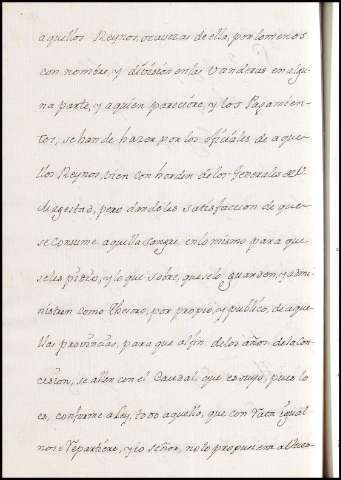 aquellos Reynos, seauezas de ello, por lo menos
con nombre, y diuision en las Vanderas en algu-
na parte, y a quien pareciere, y los Pagamien-
tos, se han de hazer, por los oficiales de aque-
llos Reynos, bien con horden de los Generales de V.
Magestad, pero dandoles satisfaccion de que
se consume aquella sangre, en lo mismo para que
se les pidio, y lo que sobre, que se lo guarden, y admi-
nistren como Thesoro, por propio, y publico, de aque-
llas prouincias, para que al fin de los años de la con-
cesion, se allen con el Caudal, que es suyo, pues lo
es, conforme a ley, todo aquello, que con Vata igual
no se Repartiere, y io señor, no lo propusiera a